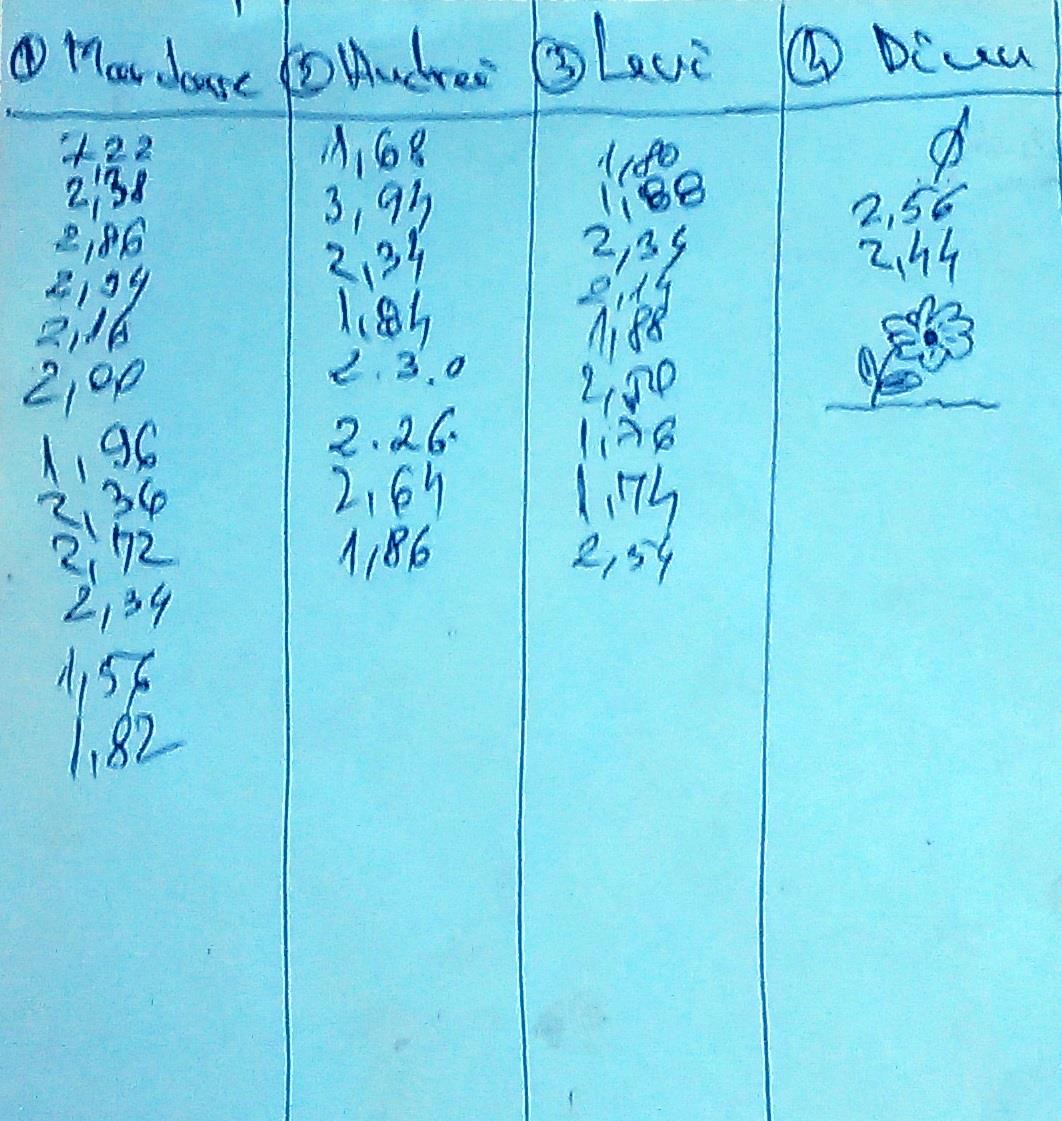 ① ② Andrei ③ Levi ④ Dinu
7,22 1,68 1,80 ∅
2,38 3,94 1,88 2,56
2,86 2,34 2,34 2,44
2,94 1,84 2,14
2,16 2.3.0 1,88
2,00 2.26 2,50
1,96 2,64 1,76
2,36 1,86 1,74
2,72 2,54
2,34
1,56
1,82